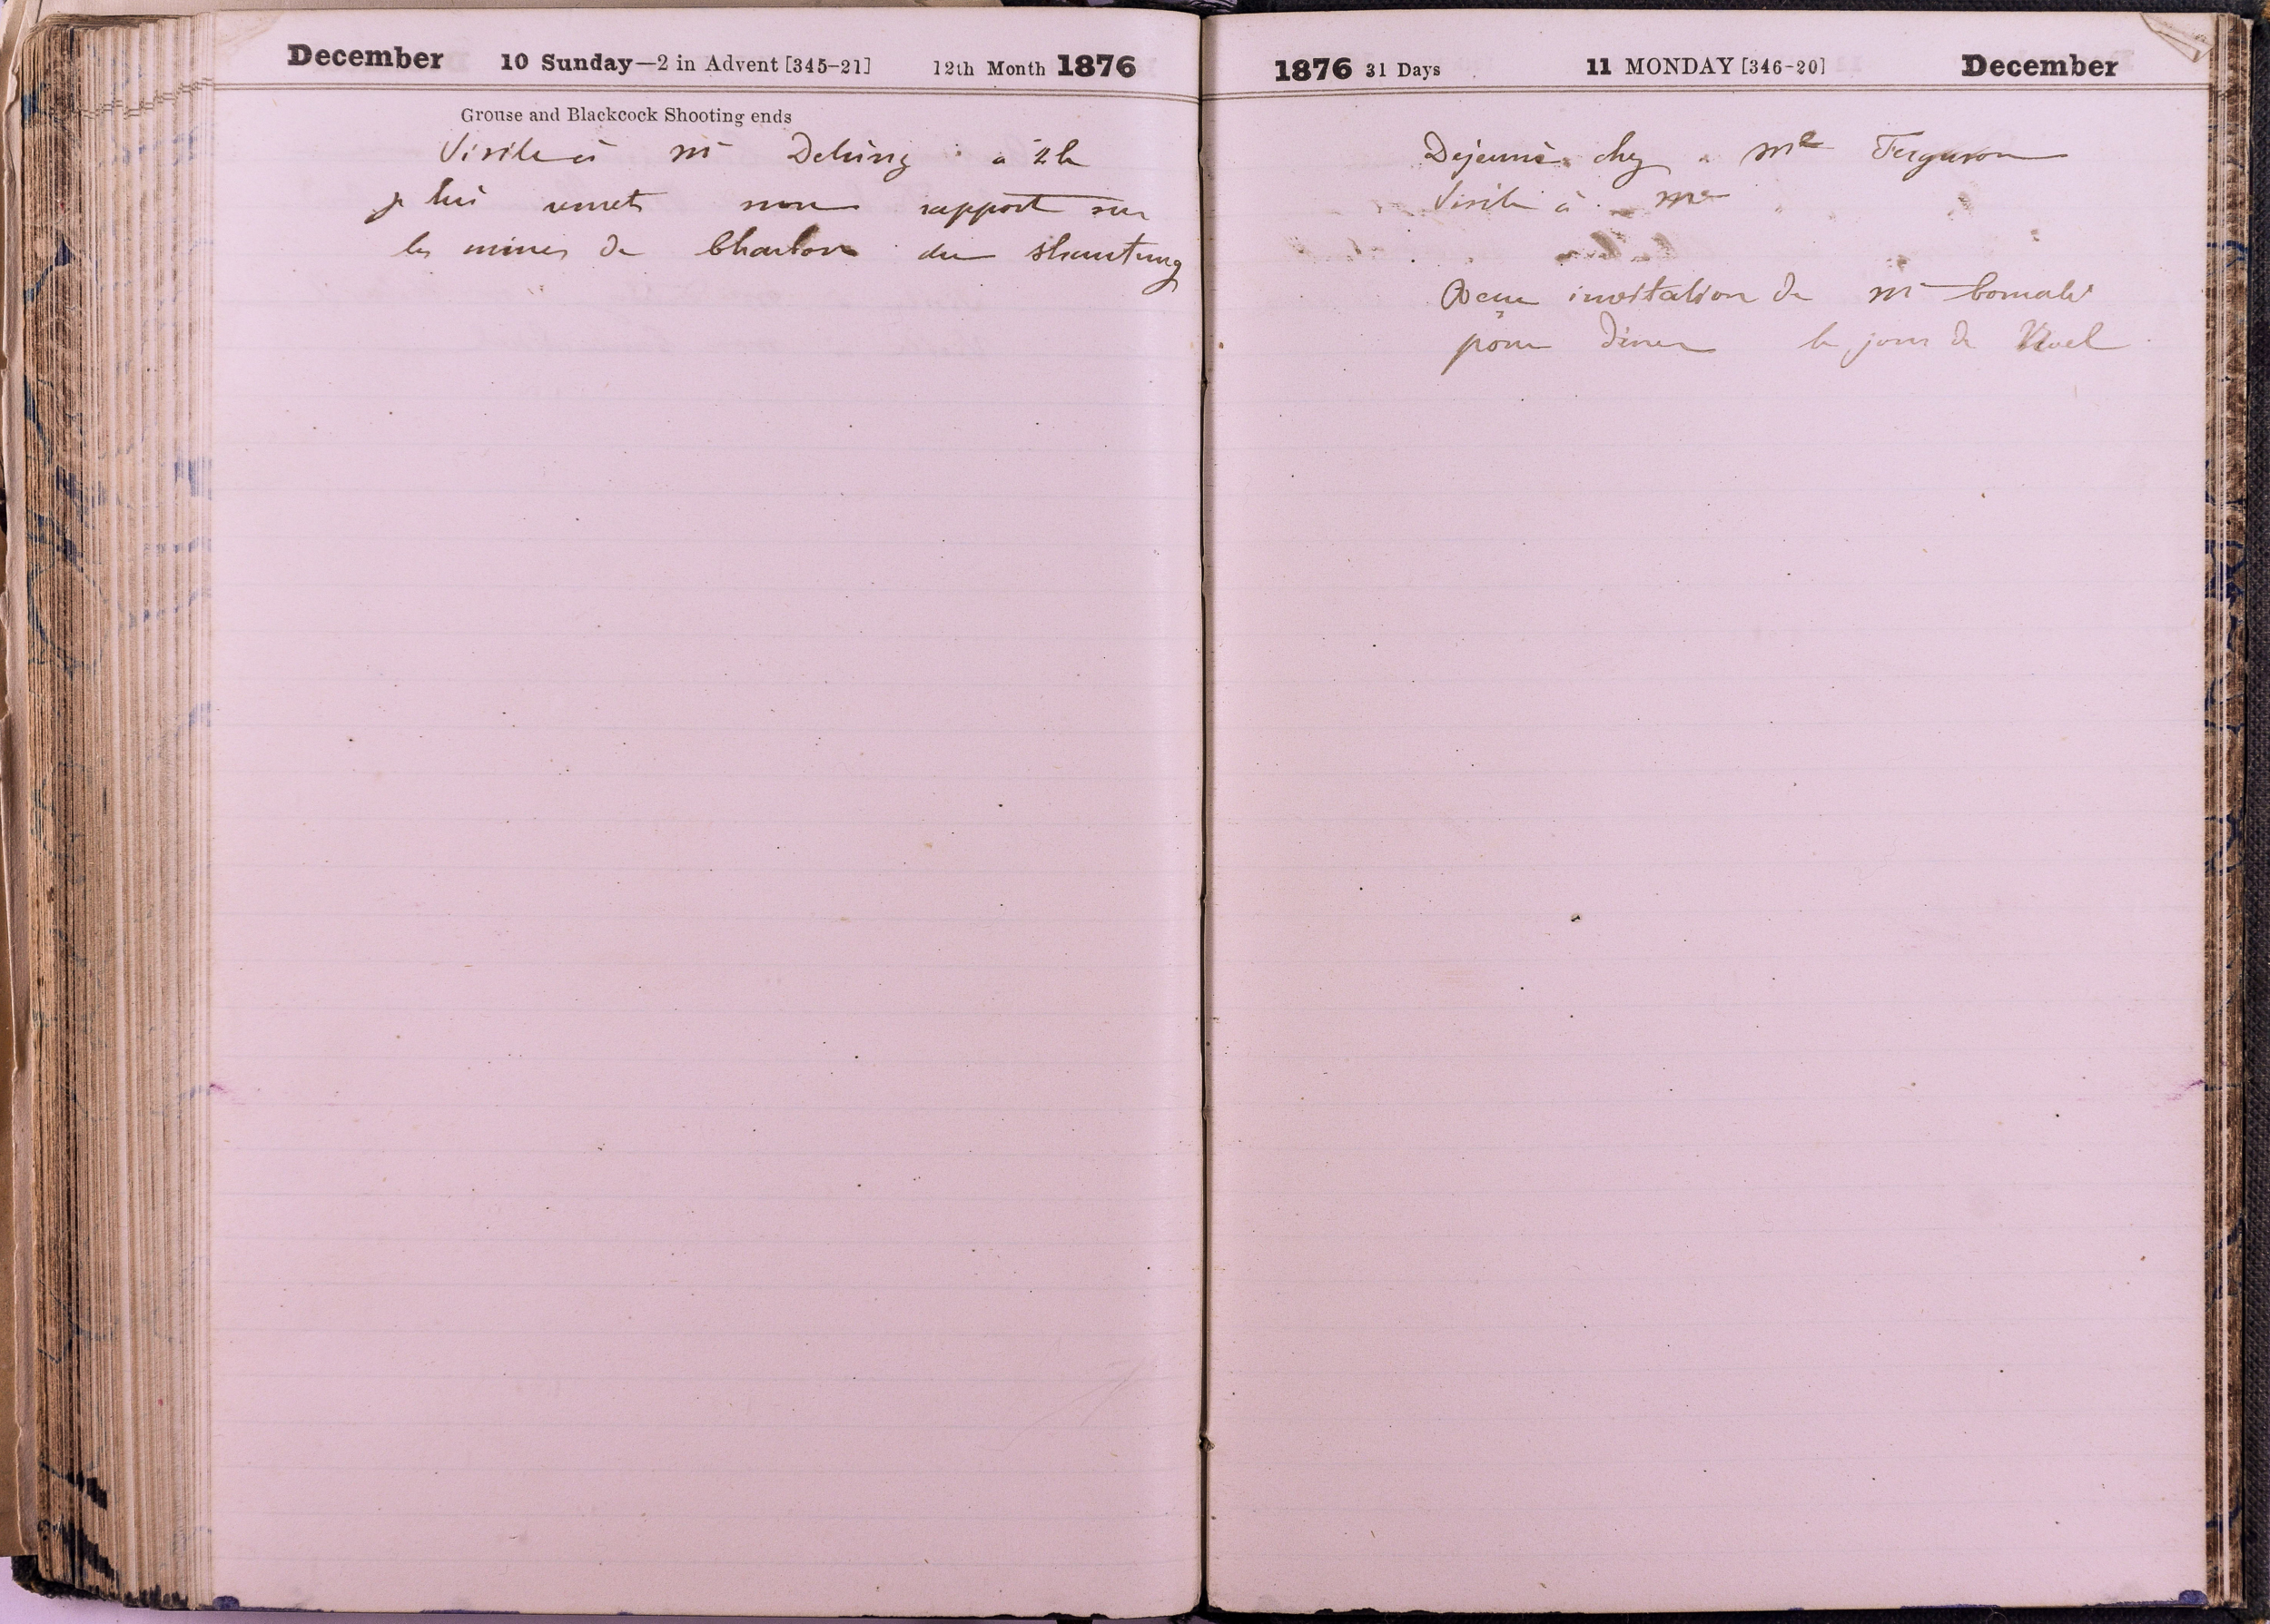 December 10 Sunday—2 in Advent [345-21] 12th Month 1876
Grouse and Blackcock Shooting ends
Visite à Mr Detring à 2h
je lui remets mon rapport sur
les mines de Charbon du Shantung
1876 31 Days 11 MONDAY [346-20] December
Dejeuné chez Me Ferguson
Visite à Me
Recu invitation de Mr
pour diner le jour de Noel